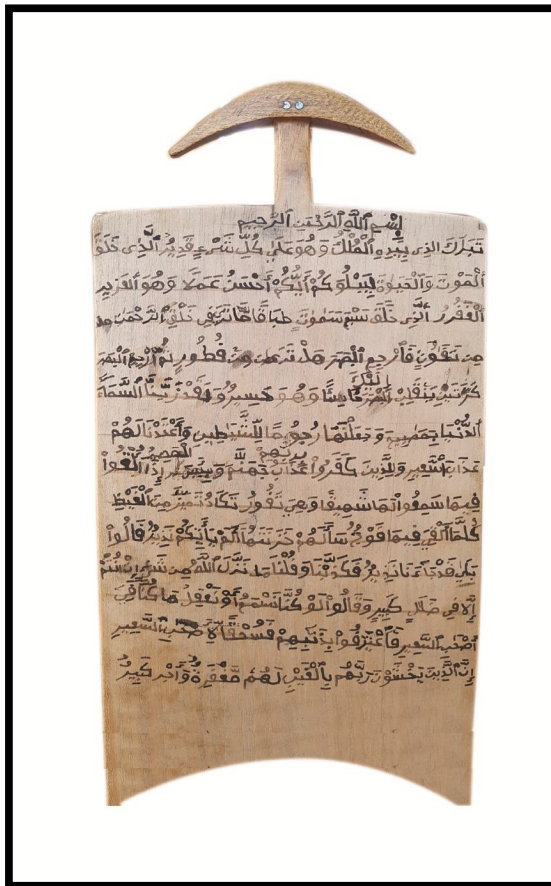 بِسْمِ ٱللَّهِ ٱلرَّحْمَٰنِ ٱلرَّحِيمِ
تَبَٰرَكَ ٱلذِى بِيَدِهِ ٱلْمُلْكُ وَهُوَ عَلَىٰ كُلِّ شَىْءٍ قَدِيرٌ ٱلَّذِى خَلَقَ
ٱلْمَوْتَ وَٱلْحَيَوٰةَ لِيَبْلُوَكُمْ أَيُّكُمْ أَحْسَنُ عَمَلًا وَهُوَ ٱلْعَزِيزُ
ٱلْغَفُورُ ٱلَّذِى خَلَقَ سَبْعَ سَمَٰوَٰتٍ طِبَاقًا مَّا تَرَىٰ فِى خَلْقِ ٱلرَّحْمَٰنِ
مِن تَفَٰوُتٍ فَٱرْجِعِ ٱلْبَصَرَ هَلْ تَرَىٰ مِن فُطُورٍ ثُمَّ ٱرْجِعِ ٱلْبَصَرَ
كَرَّتَيْنِ يَنقَلِبْ إِلَيْكَ ٱلْبَصَرُ خَاسِئًا وَهُوَ حَسِيرٌ وَلَقَدْ زَيَّنَّا ٱلسَّمَآءَ
ٱلدُّنْيَا بِمَصَٰبِيحَ وَجَعَلْنَٰهَا رُجُومًا لِّلشَّيَٰطِينِ وَأَعْتَدْنَا لَهُمْ
عَذَابَ ٱلسَّعِيرِ وَلِلَّذِينَ كَفَرُوا۟ بِرَبِّهِمْ عَذَابُ جَهَنَّمَ وَبِيسَ ٱلْمَصِيرُ إِذَآ أُلْقُوا۟
فِيهَا سَمِعُوا۟ لَهَا شَهِيقًا وَهِىَ تَفُورُ تَكَادُ تَمَيَّزُ مِنَ ٱلْغَيْظِ
كُلَّمَآ أُلْقِىَ فِيهَا فَوْجٌ سَأَلَهُمْ خَزَنَتُهَآ أَلَمْ يَأْتِكُمْ نَذِيرٌ قَالُوا۟
بَلَىٰ قَدْ جَآءَنَا نَذِيرٌ فَكَذَّبْنَا وَقُلْنَا مَا نَزَّلَ ٱللَّهُ مِن شَىْءٍ إِنْ أَنتُمْ
إِلَّا فِى ضَلَٰلٍ كَبِيرٍ وَقَالُوا۟ لَوْ كُنَّا نَسْمَعُ أَوْ نَعْقِلُ مَا كُنَّا فِىٓ
أَصْحَٰبِ ٱلسَّعِيرِ فَٱعْتَرَفُوا۟ بِذَنۢبِهِمْ فَسُحْقًا لِّأَصْحَٰبِ ٱلسَّعِيرِ
إِنَّ ٱلَّذِينَ يَخْشَوْنَ رَبَّهُم بِٱلْغَيْبِ لَهُم مَّغْفِرَةٌ وَأَجْرٌ كَبِيرٌ